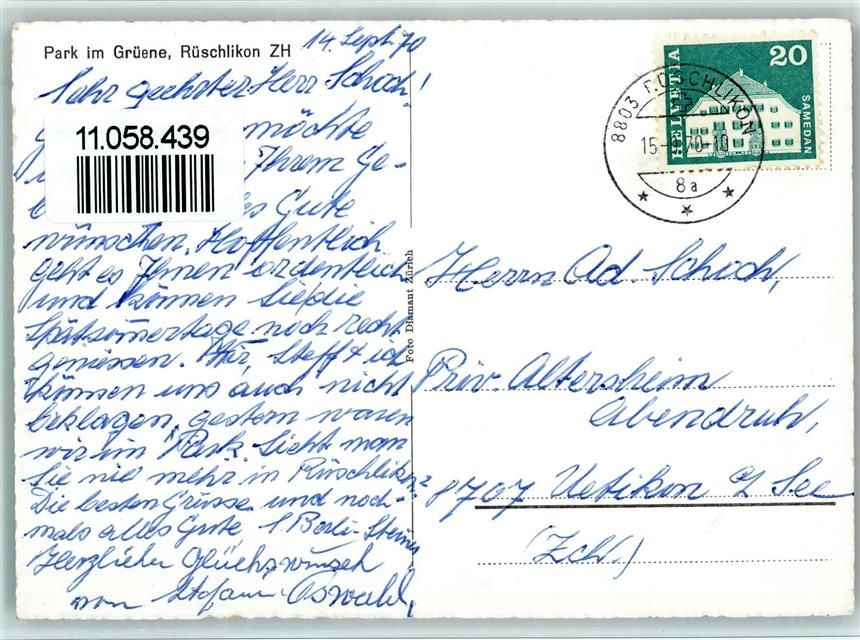 Park im Grüene, Rüschlikon ZH
14. Sept. 70
Sehr geehrter Herr Schoch!
11.058.439
möchte
Ihrem Ge-
es Gute
wünschen. Hoffentlich
geht es Ihnen ordentlich
und können Sie die
Spätsomertage noch recht
geniessen. Wir, Steffi + ich
können uns auch nicht
beklagen, gestern waren
wir im Park. Sieht man
Sie nie mehr in Rüschlikon?
Die besten Grüsse und noch-
mals alles Gute,
Herzlichen Glückwunsch
von Oswald,
Foto Dismant Zürich
HELVETIA
20
SAMEDAN
8803 RÜSCHLIKON
8a
Herrn Ad. Schoch,
Priv. Altersheim
Abendruh,
8707 Uetikon a/ See
(Zch.)